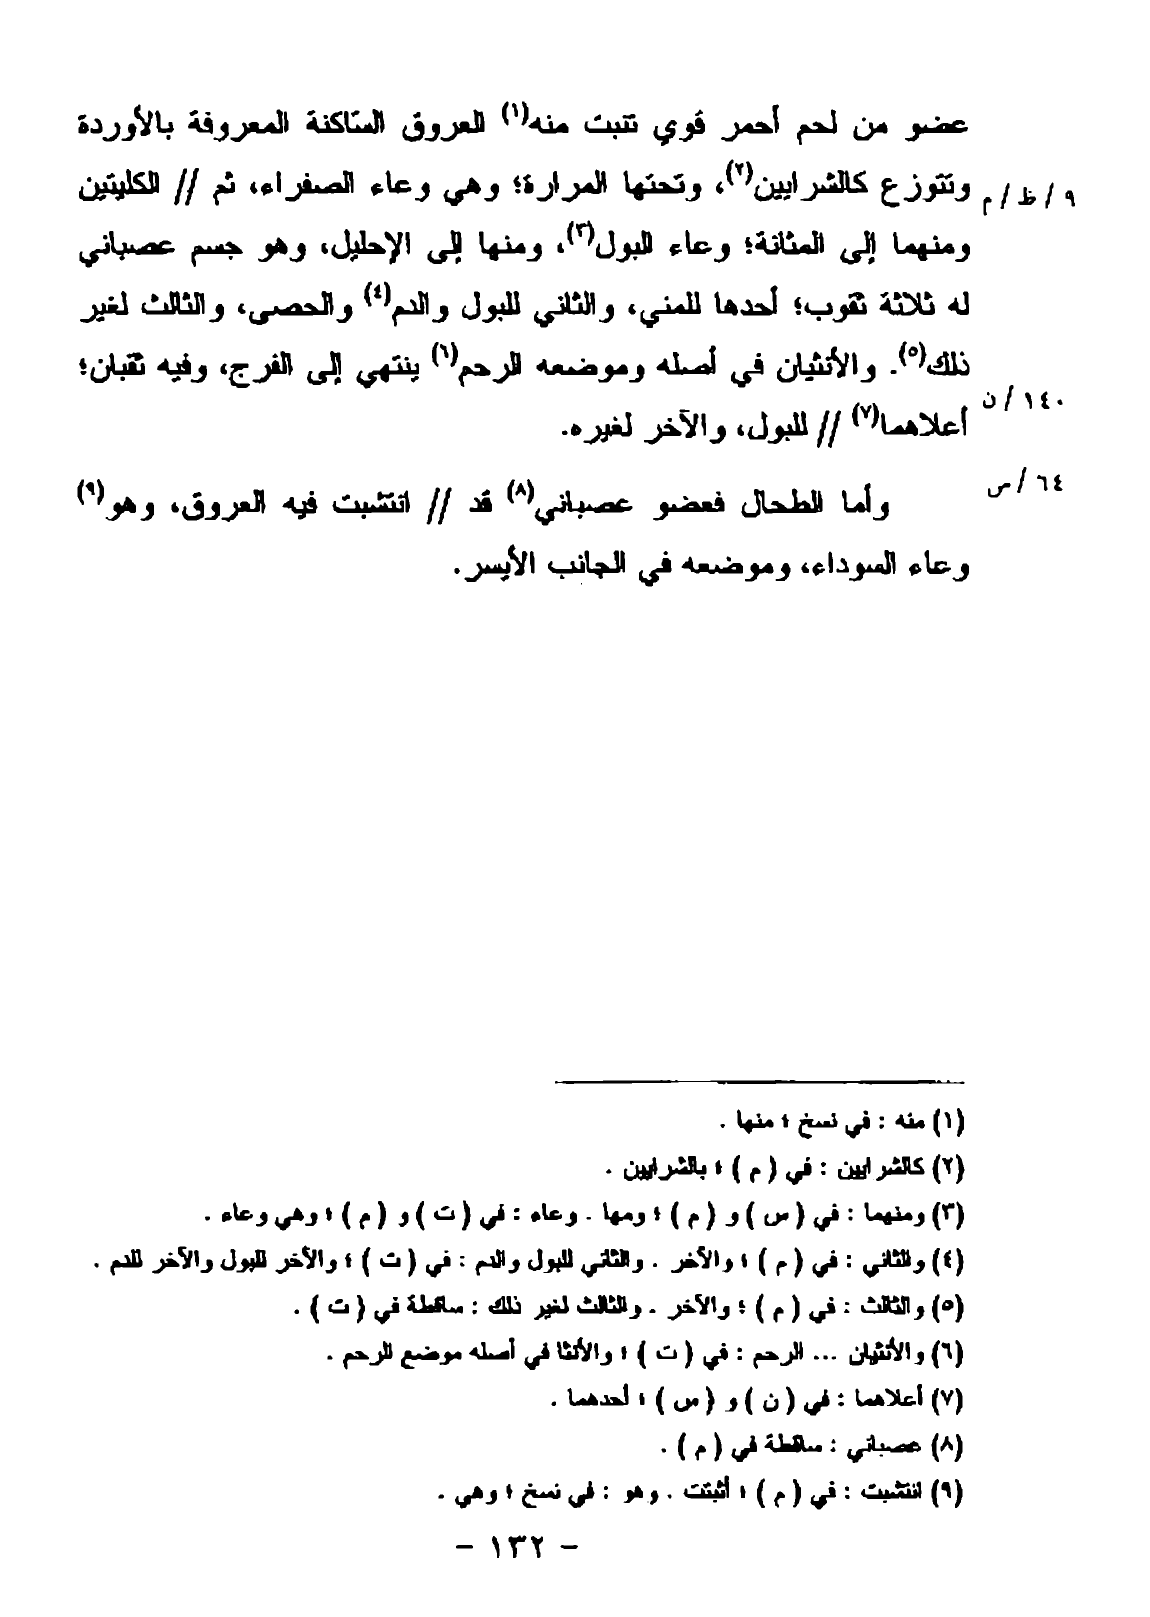 عضو من لحم أحمر قوي تنبت منه(١) العروق السّاكنة المعروفة بالأوردة
وتتوزع كالشرايين(٢)، وتحتها المرارة؛ وهي وعاء الصفراء، ثم // الكليتين
٩ / ظ / م
ومنهما إلى المثانة؛ وعاء البول(٣)، ومنها إلى الإحليل، وهو جسم عصباني
له ثلاثة ثقوب؛ أحدها للمني، والثاني للبول والدم(٤) والحصى، والثالث لغير
ذلك(٥). والأنثيان في أصله وموضعه الرحم(٦) ينتهي إلى الفرج، وفيه ثقبان؛
١٤٠ / ن
أعلاهما(٧) // للبول، والآخر لغيره.
٦٤ / س
وأما الطحال فعضو عصباني(٨) قد // انتشبت فيه العروق، وهو(٩)
وعاء السوداء، وموضعه في الجانب الأيسر.
(١) منه : في نسخ ؛ منها .
(٢) كالشرايين : في ( م ) ؛ بالشرايين .
(٣) ومنهما : في ( س ) و ( م ) ؛ ومها . وعاء : في ( ت ) و ( م ) ؛ وهي وعاء .
(٤) والثاني : في ( م ) ؛ والآخر . والثاني للبول والدم : في ( ت ) ؛ والآخر للبول والآخر للدم .
(٥) والثالث : في ( م ) ؛ والآخر . والثالث لغير ذلك : ساقطة في ( ت ) .
(٦) والأنثيان ... الرحم : في ( ت ) ؛ والأنثا في أصله موضع للرحم .
(٧) أعلاهما : في ( ن ) و ( س ) ؛ أحدهما .
(٨) عصباني : ساقطة في ( م ) .
(٩) انتشبت : في ( م ) ؛ أثبتت . وهو : في نسخ ؛ وهي .
- ١٣٢ -